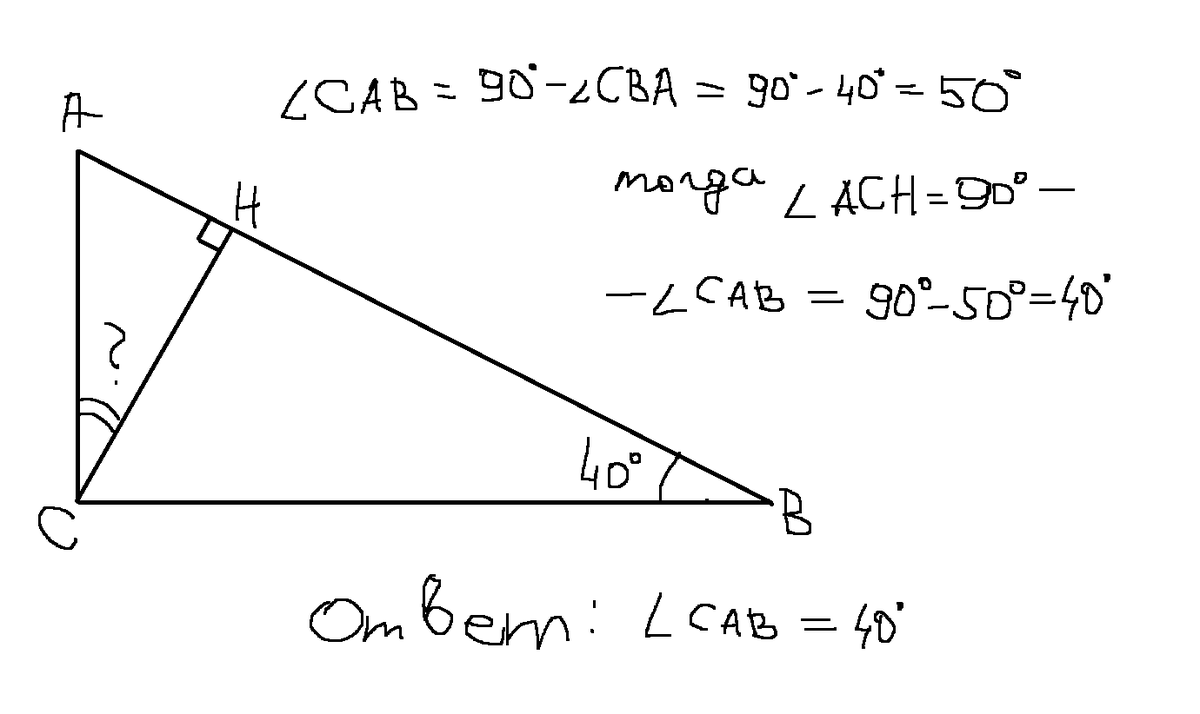 ∠CAB = 90° - ∠CBA = 90° - 40° = 50°
A
тогда ∠ACH = 90° —
H
— ∠CAB = 90° - 50° = 40°
?
40°
C
B
Ответ: ∠CAB = 40°